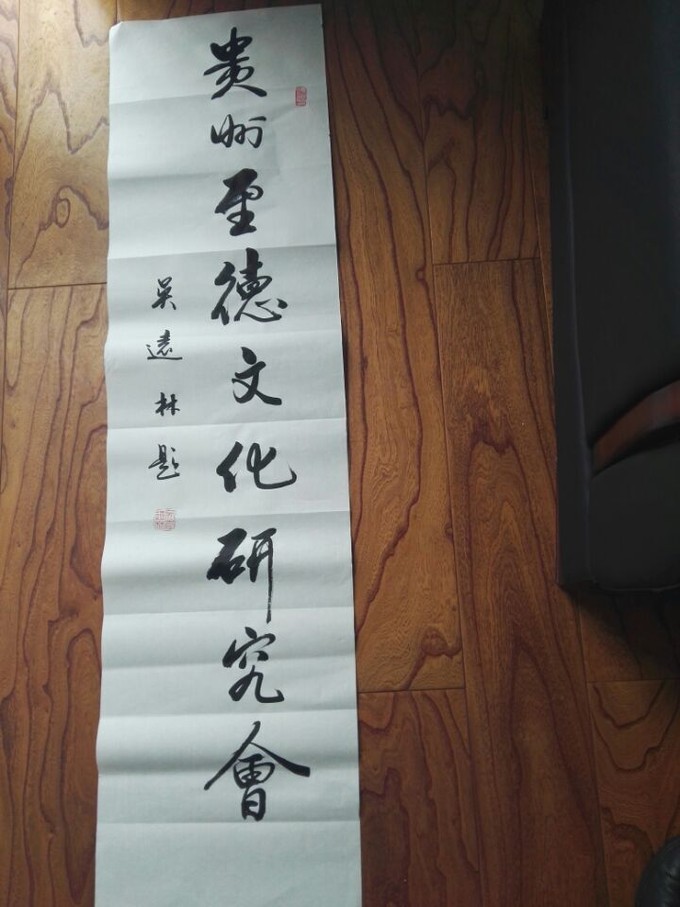 贵州至德文化研究會
吴遠林题